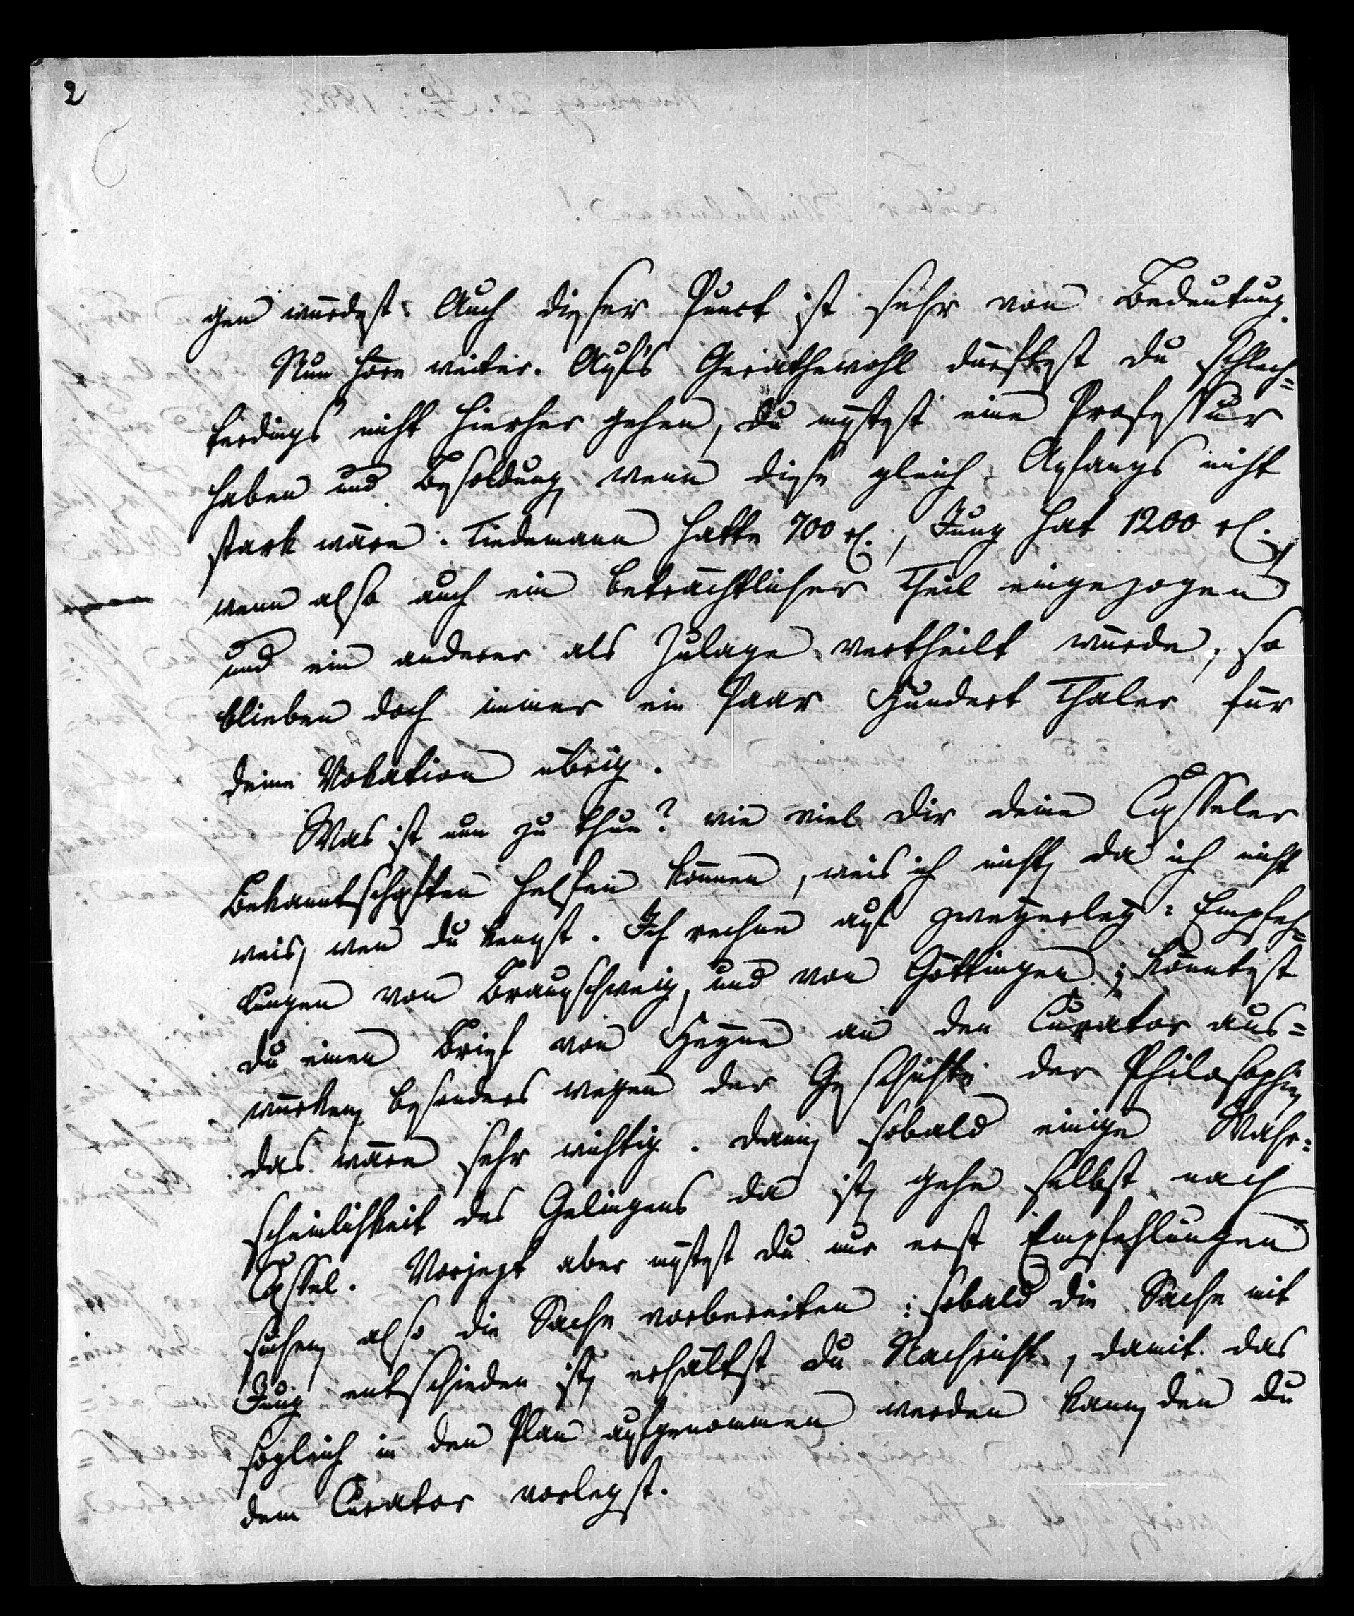 2
gen wurdest. Auch dieser Punct ist sehr von Bedeutung.
Nun höre weiter. Aufs Gerathewohl dürftest du schlech=
terdings nicht hierher gehen, du müstest eine Professur
haben und Besoldung, wenn diese gleich Anfangs nicht
stark wäre. Tiedemann hatte 700 rl., Jung hat 1200 rl.,
wenn also auch ein beträchtlicher Theil eingezogen
und ein anderer als Zulage vertheilt würde, so
blieben doch immer ein Paar Hundert Thaler für
deine Vokation übrig.
Was ist nun zu thun? wie viel dir deine Casseler
Bekanntschaften helfen können, weis ich nicht, da ich nicht
weis, wen du kenst. Ich rechne auf zweyerley: Empfeh=
lungen von Braunschweig, und von Göttingen; könntest
du einen Brief von Heyne an den Curator aus=
würken, besonders wegen der Geschichte der Philosophie,
das wäre sehr wichtig. Dann, sobald einige Wahr=
scheinlichkeit des Gelingens da ist, gehe selbst nach
Cassel. Vorjezt aber müstest du nur erst Empfehlungen
suchen, also die Sache vorbereiten: sobald die Sache mit
Jung entschieden ist, erhältst du Nachricht, damit das
sogleich in den Plan aufgenommen werden kann, den du
dem Curator vorlegst.